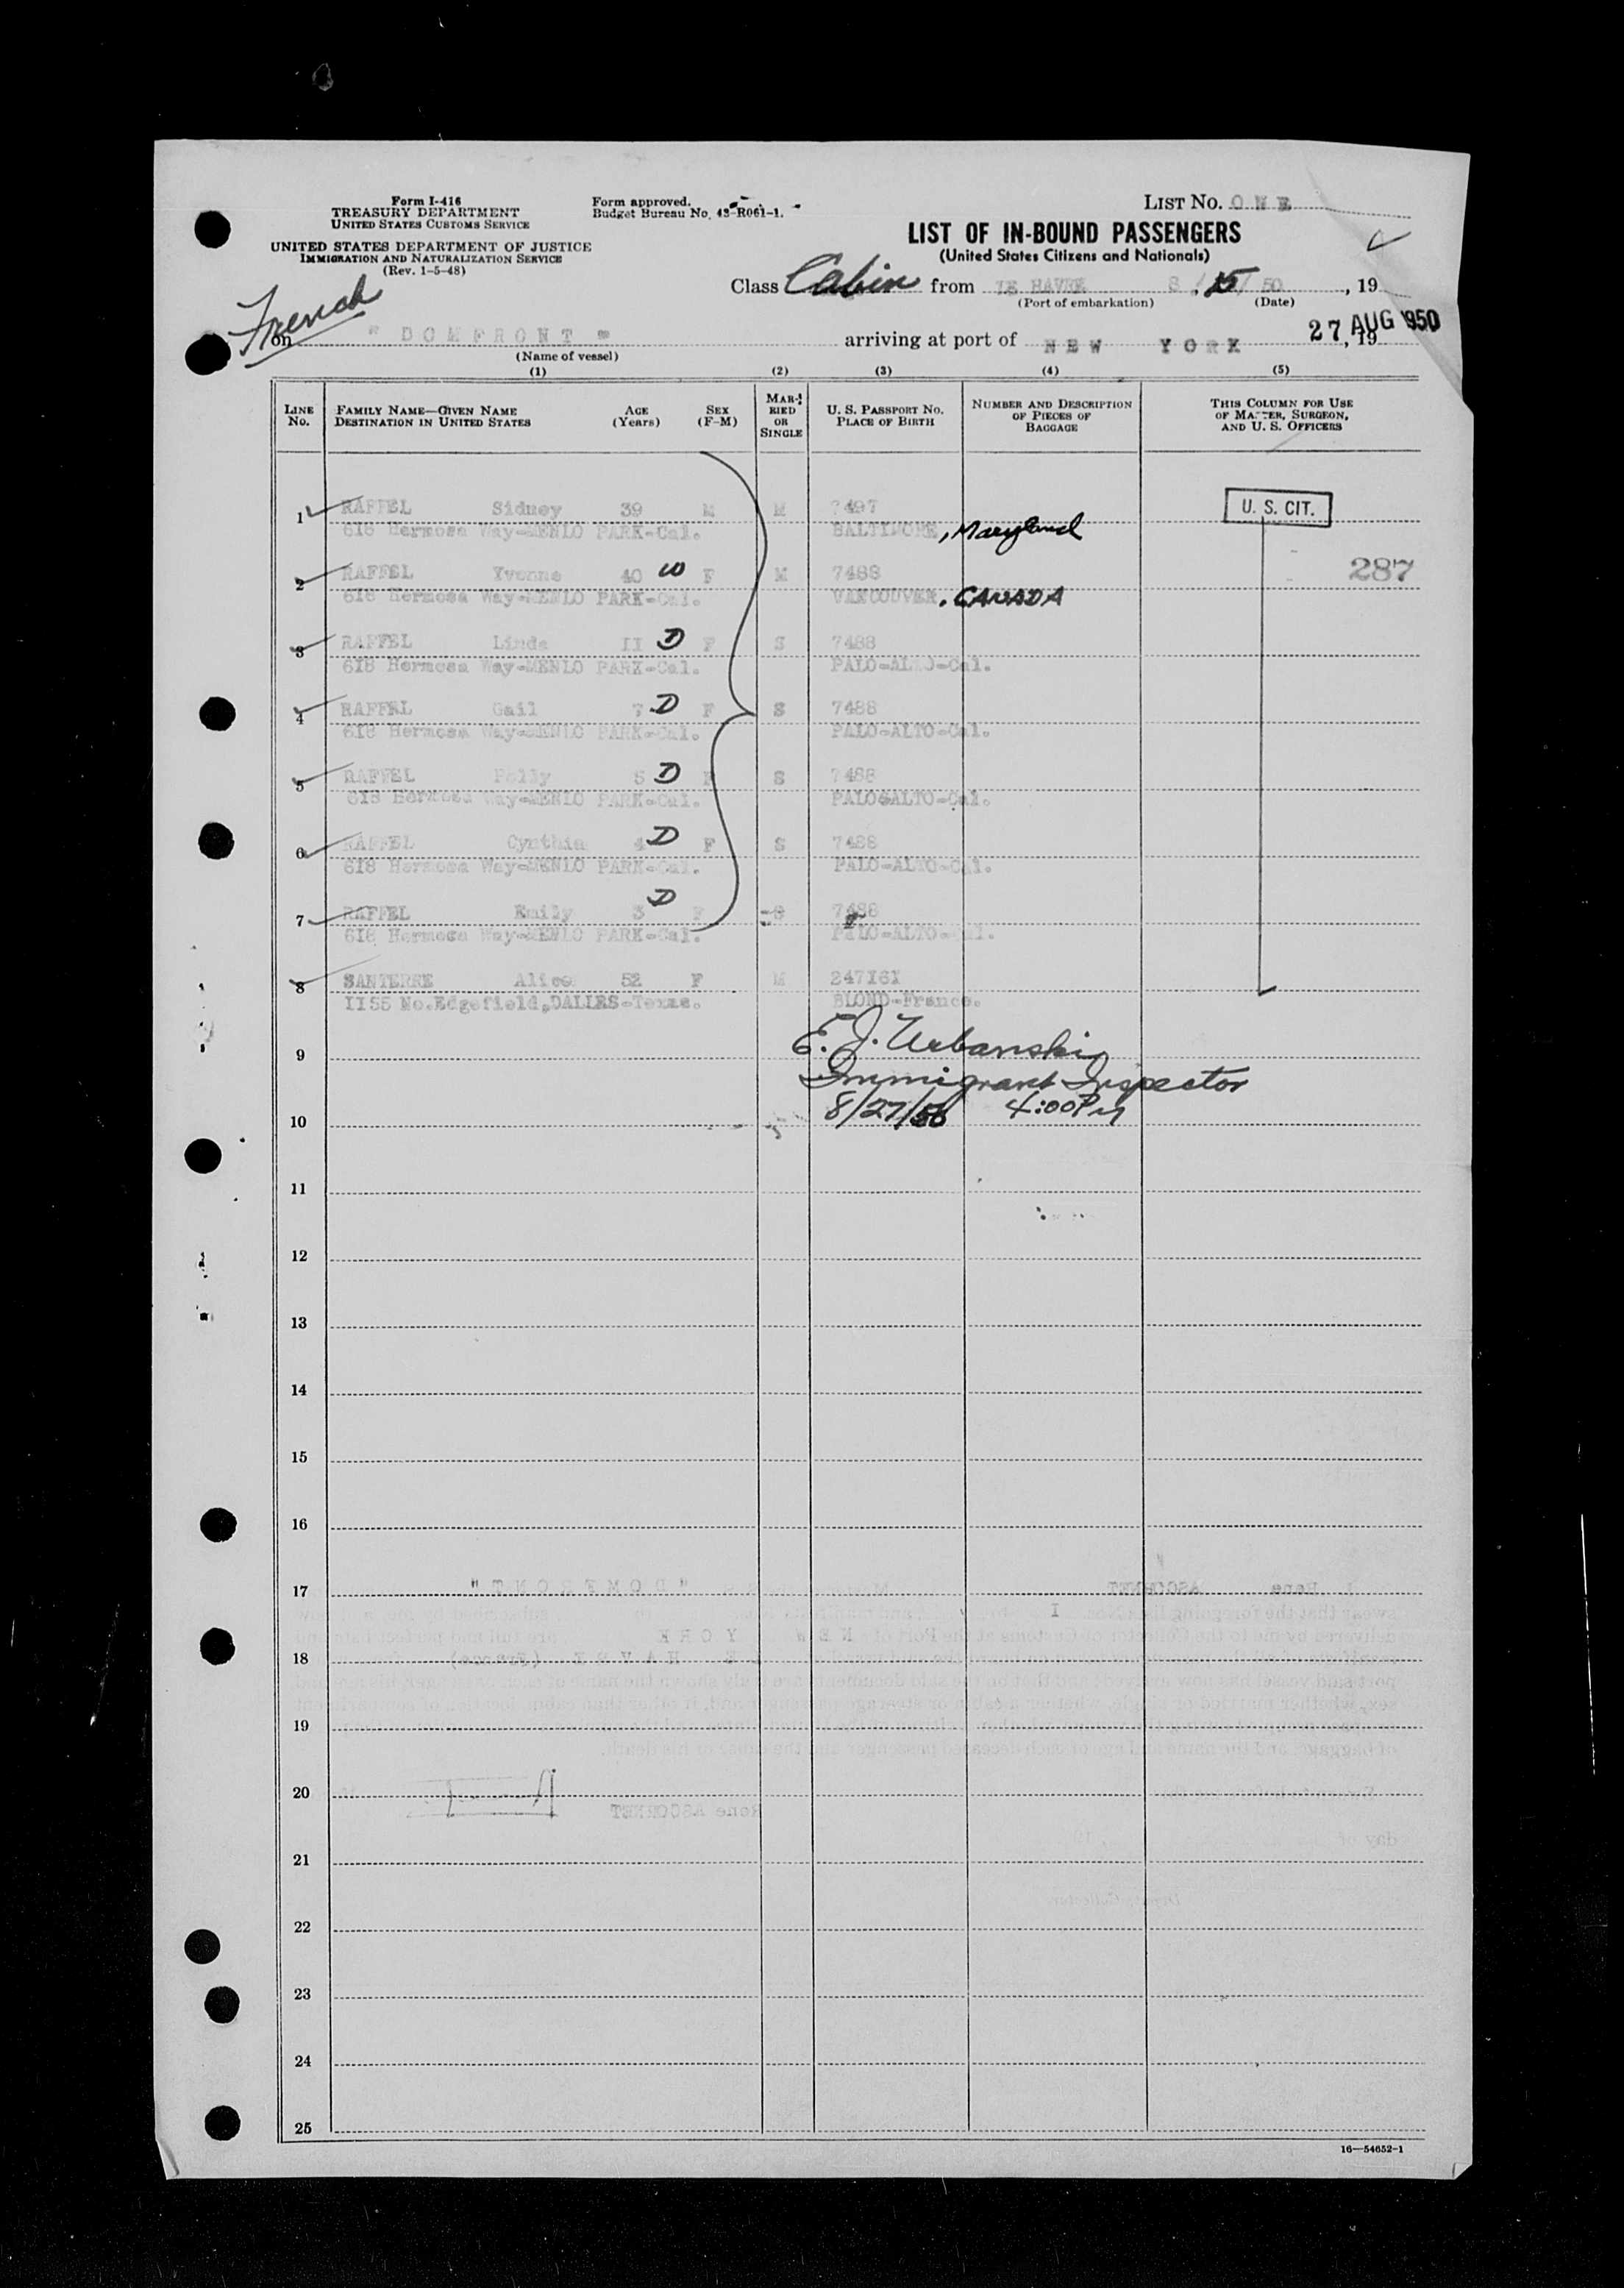 Form I-416
TREASURY DEPARTMENT
UNITED STATES CUSTOMS SERVICE
UNITED STATES DEPARTMENT OF JUSTICE
IMMIGRATION AND NATURALIZATION SERVICE
(Rev. 1-5-48)
Form approved.
Budget Bureau No. 43-R061-1.
LIST NO. ONE
LIST OF IN-BOUND PASSENGERS
(United States Citizens and Nationals)
Class Cabin from LE HAVRE 8/15/50, 19
(Port of embarkation) (Date)
French
on "DOMFRONT" arriving at port of NEW YORK 27 AUG 1950, 19
(Name of vessel)
(1) (2) (3) (4) (5)
LINE No. FAMILY NAME—GIVEN NAME DESTINATION IN UNITED STATES AGE (Years) SEX (F-M) MARRIED OR SINGLE U. S. PASSPORT NO. PLACE OF BIRTH NUMBER AND DESCRIPTION OF PIECES OF BAGGAGE THIS COLUMN FOR USE OF MASTER, SURGEON, AND U. S. OFFICERS
1 RAFFEL Sidney 39 M M 7497 U. S. CIT.
618 Hermosa Way-MENLO PARK-Cal. BALTIMORE, Maryland
2 RAFFEL Yvonne 40 W F M 7488 287
618 Hermosa Way-MENLO PARK-Cal. VANCOUVER, CANADA
3 RAFFEL Linda II D F S 7488
6I8 Hermosa Way-MENLO PARK-Cal. PALO-ALTO-Cal.
4 RAFFEL Gail 7 D F S 7488
6I8 Hermosa Way-MENLO PARK-Cal. PALO-ALTO-Cal.
5 RAFFEL Polly 5 D F S 7488
6I8 Hermosa Way-MENLO PARK-Cal. PALO-ALTO-Cal.
6 RAFFEL Cynthia 4 D F S 7488
6I8 Hermosa Way-MENLO PARK-Cal. PALO-ALTO-Cal.
7 RAFFEL Emily 3 D F S 7488
6I8 Hermosa Way-MENLO PARK-Cal. PALO-ALTO-Cal.
8 SANTERRE Alice 52 F M 247I6I
II55 No.Edgefield,DALLAS-Texas. BLOND-France.
9 E. J. Urbanski
Immigrant Inspector
10 8/27/50 4:00PM
11
12
13
14
15
16
17
18
19
20
21
22
23
24
25
16—54652-1